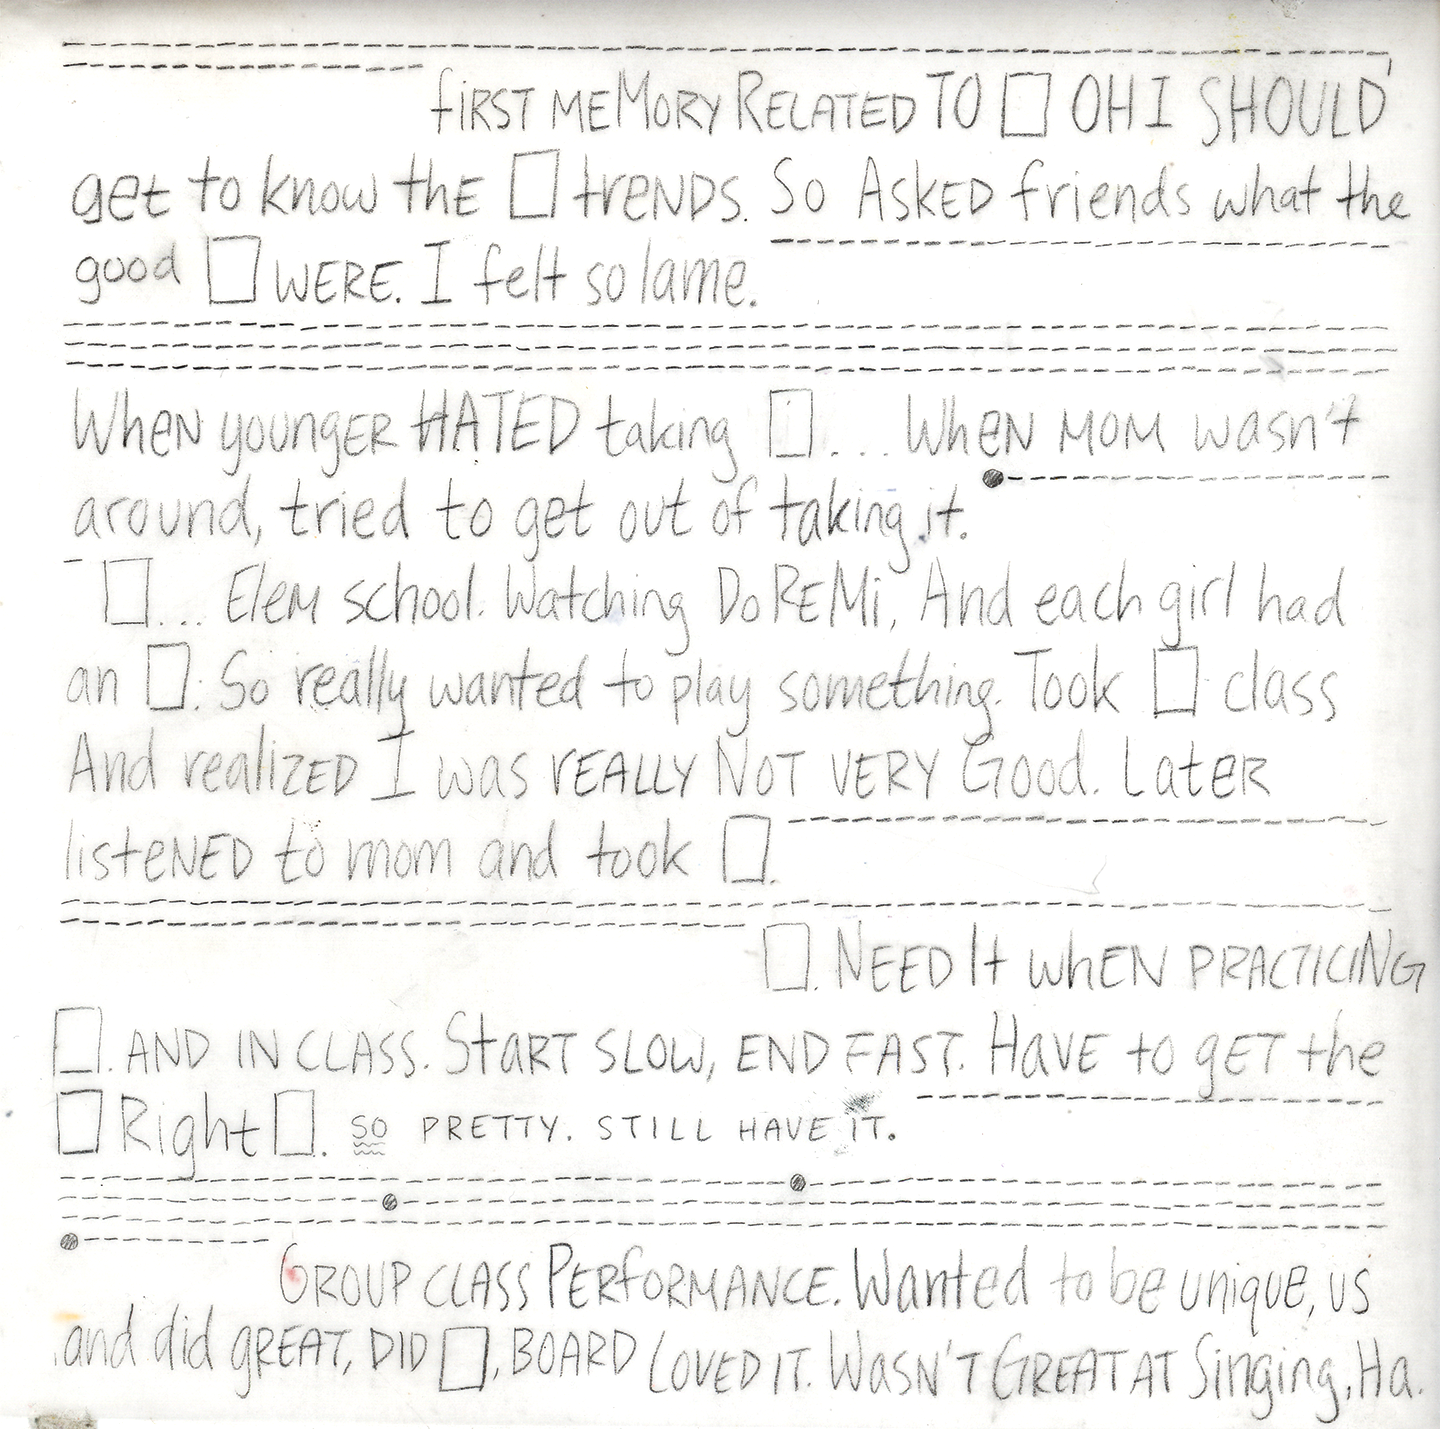 fiRST meMory Related TO □ OH I SHOULD
get to know the □ trends. So Asked friends what the
good □ WERE. I felt so lame.
When youngER HATED taking □... When MOM wasn't
around, tried to get out of taking it.
□... Elem school. Watching DoReMi, And each girl had
an □. So really wanted to play something. Took □ class
And realizED I was rEALLY NOT VERY Good. Later
listeNED to mom and took □.
□. NEED It whEN PRACTICING
□. AND IN CLASS. StaRT SLOW, END FAST. HaVE to gET the
□ Right □. SO PRETTY. STILL HAVE IT.
GROUP CLASS PERfORMANCE. Wanted to be unique, us
and did gREAT, DID □, BOARD LOVED IT. WASN'T GREAT AT Singing, Ha.